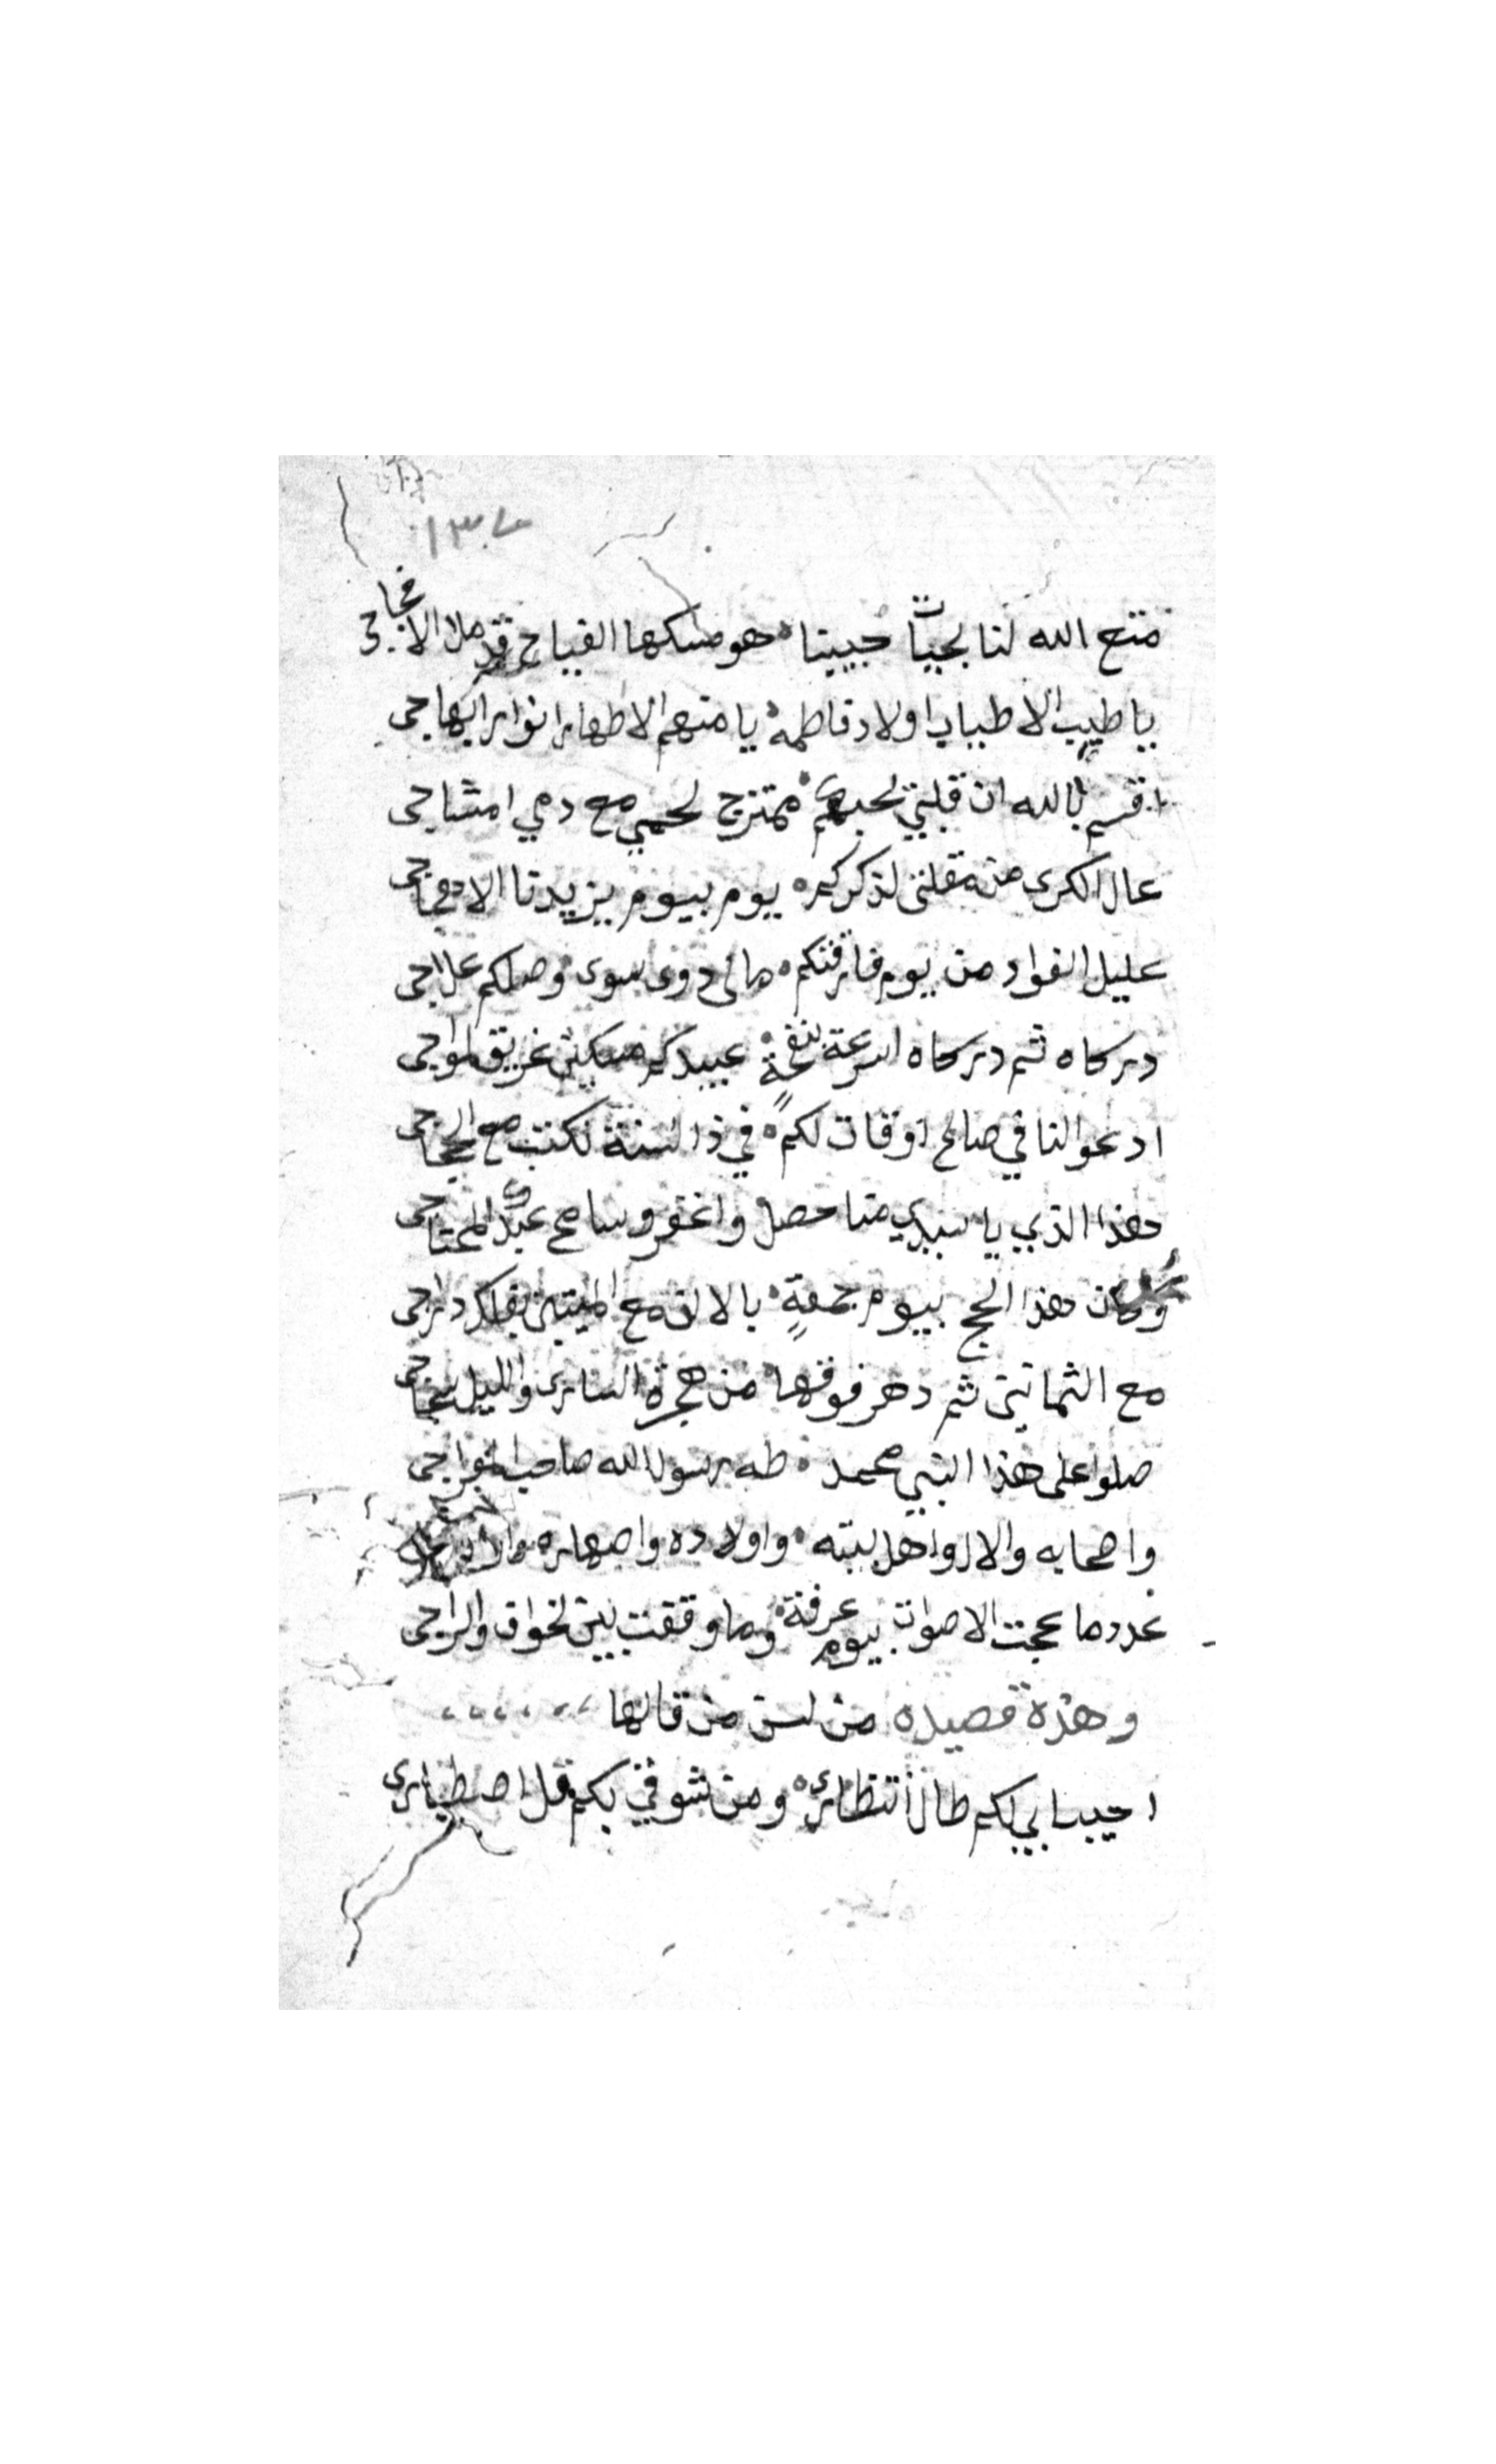 ١٣٧
متع الله لنا بحياة حبيبنا هو مسكها الفياح قد ملا الافجاجى
يا طيب الاطياب اولاد فاطمة يا منهم الاطهار انوار ابهاجى
اقسم بالله ان قلبي لحبهم ممتزج لحمي مع دمي امشاجى
عال الكرى من مقلتى لذكركم يوم بيوم يزيدنا
عليل الفواد من يوم فارقتكم مالى دوى سوى وصلكم علاجى
دركاه ثم دركاه اسرعة بنفحة عبيدكم مسكين غريق امواجى
ادعوا لنا في صالح اوقات لكم في ذا السنة نكتب مع الحجاجى
هذا الذي يا سيدي منا حصل واغفر وسامح عبدك المحتاجى
وكان هذا الحج بيوم جمعة بالالف مع الميتين
مع الثمانين ثم دهر فوقها من هجرة السارى والليل سجاجى
صلوا على هذا النبي محمد طه رسول الله صاحب
واصحابه والال واهل بيته واولاده واصهاره
عدد ما عجت الاصوات بيوم عرفة وما وقفت بين لخواف والراجى
وهذه قصيده من لسن من قالها
احبابي لكم طال انتظارى ومن شوقي بكم قل اصطبارى